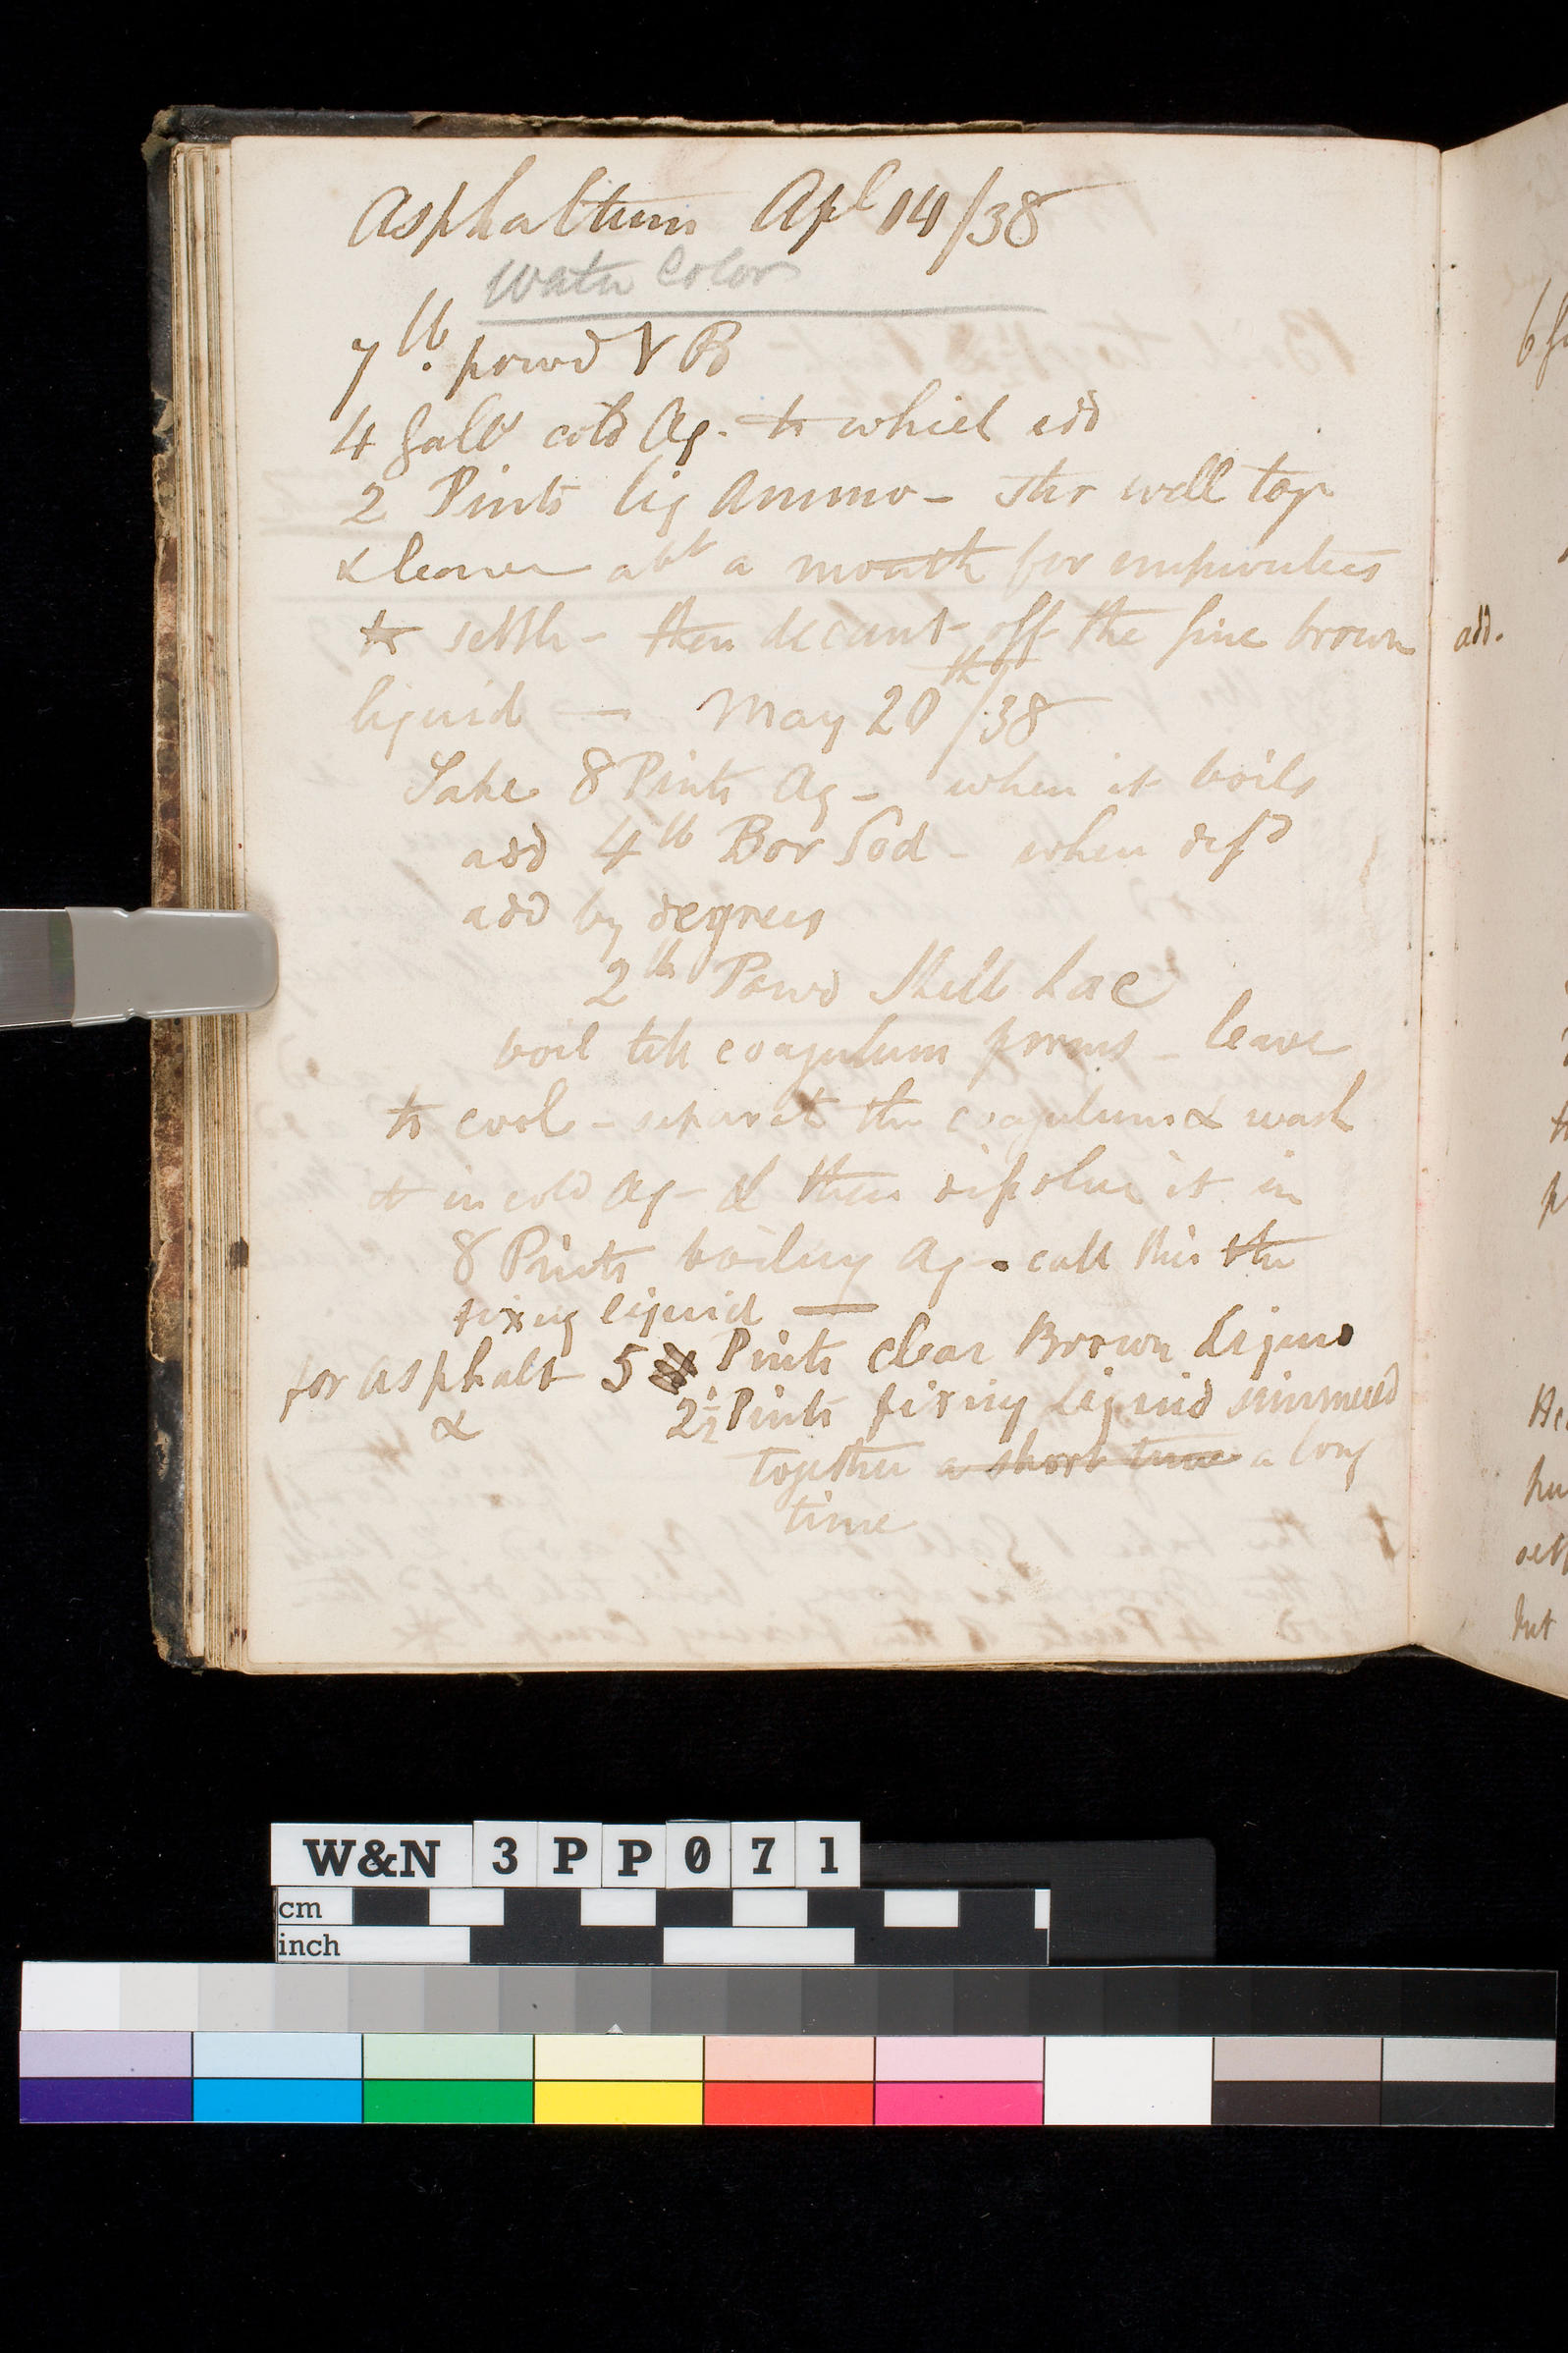 Asphaltum Apl 14/38
Water Color
7 lb. powd V B
4 Galls cold Aq. to which add
2 Pints liq Ammo - Stir well tog
& leave abt a month for impurities
to settle - then decant off the fine brown
liquid — May 20th/38
Take 8 Pints Aq - when it boils
add 4 lb Bor Sod - when disd
add by degrees
2 lb Powd Shell Lac
boil till coagulum forms - leave
to cool - separate the coagulum & wash
it in cold Aq - & then dissolve it in
8 Pints boiling Aq - call this the
fixing liquid —
for Asphalt 5 Pints clear Brown Liquid
& 2½ Pints fixing Liquid simmered
together a short time a long
time
add.
6
p
hu
sett
but
W&N 3PP071
cm
inch